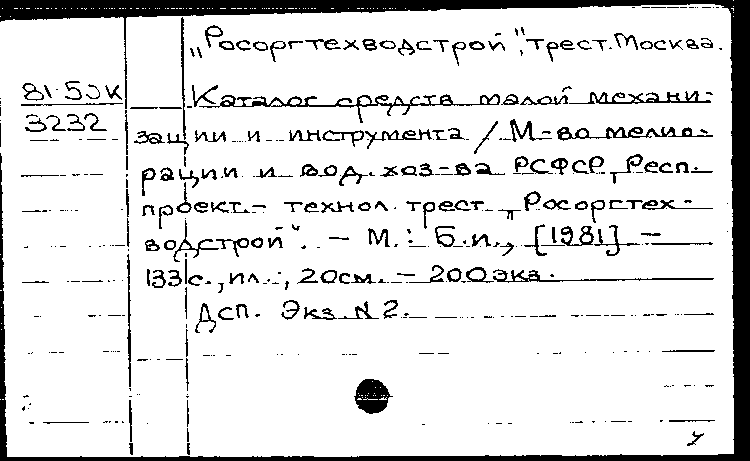 „Росоргтехводстрой“, трест. Москва.
81-5ДК
3232
Каталог средств малой механи-
зации и инструмента / М-во мелио-
рации и вод. хоз-ва РСФСР, Респ.
проект.- технол. трест „Росоргтех-
водстрой“. – М.: Б.и., [1981] –
133 с., ил.; 20см. – 200 экз.
ДСП. Экз. N 2.